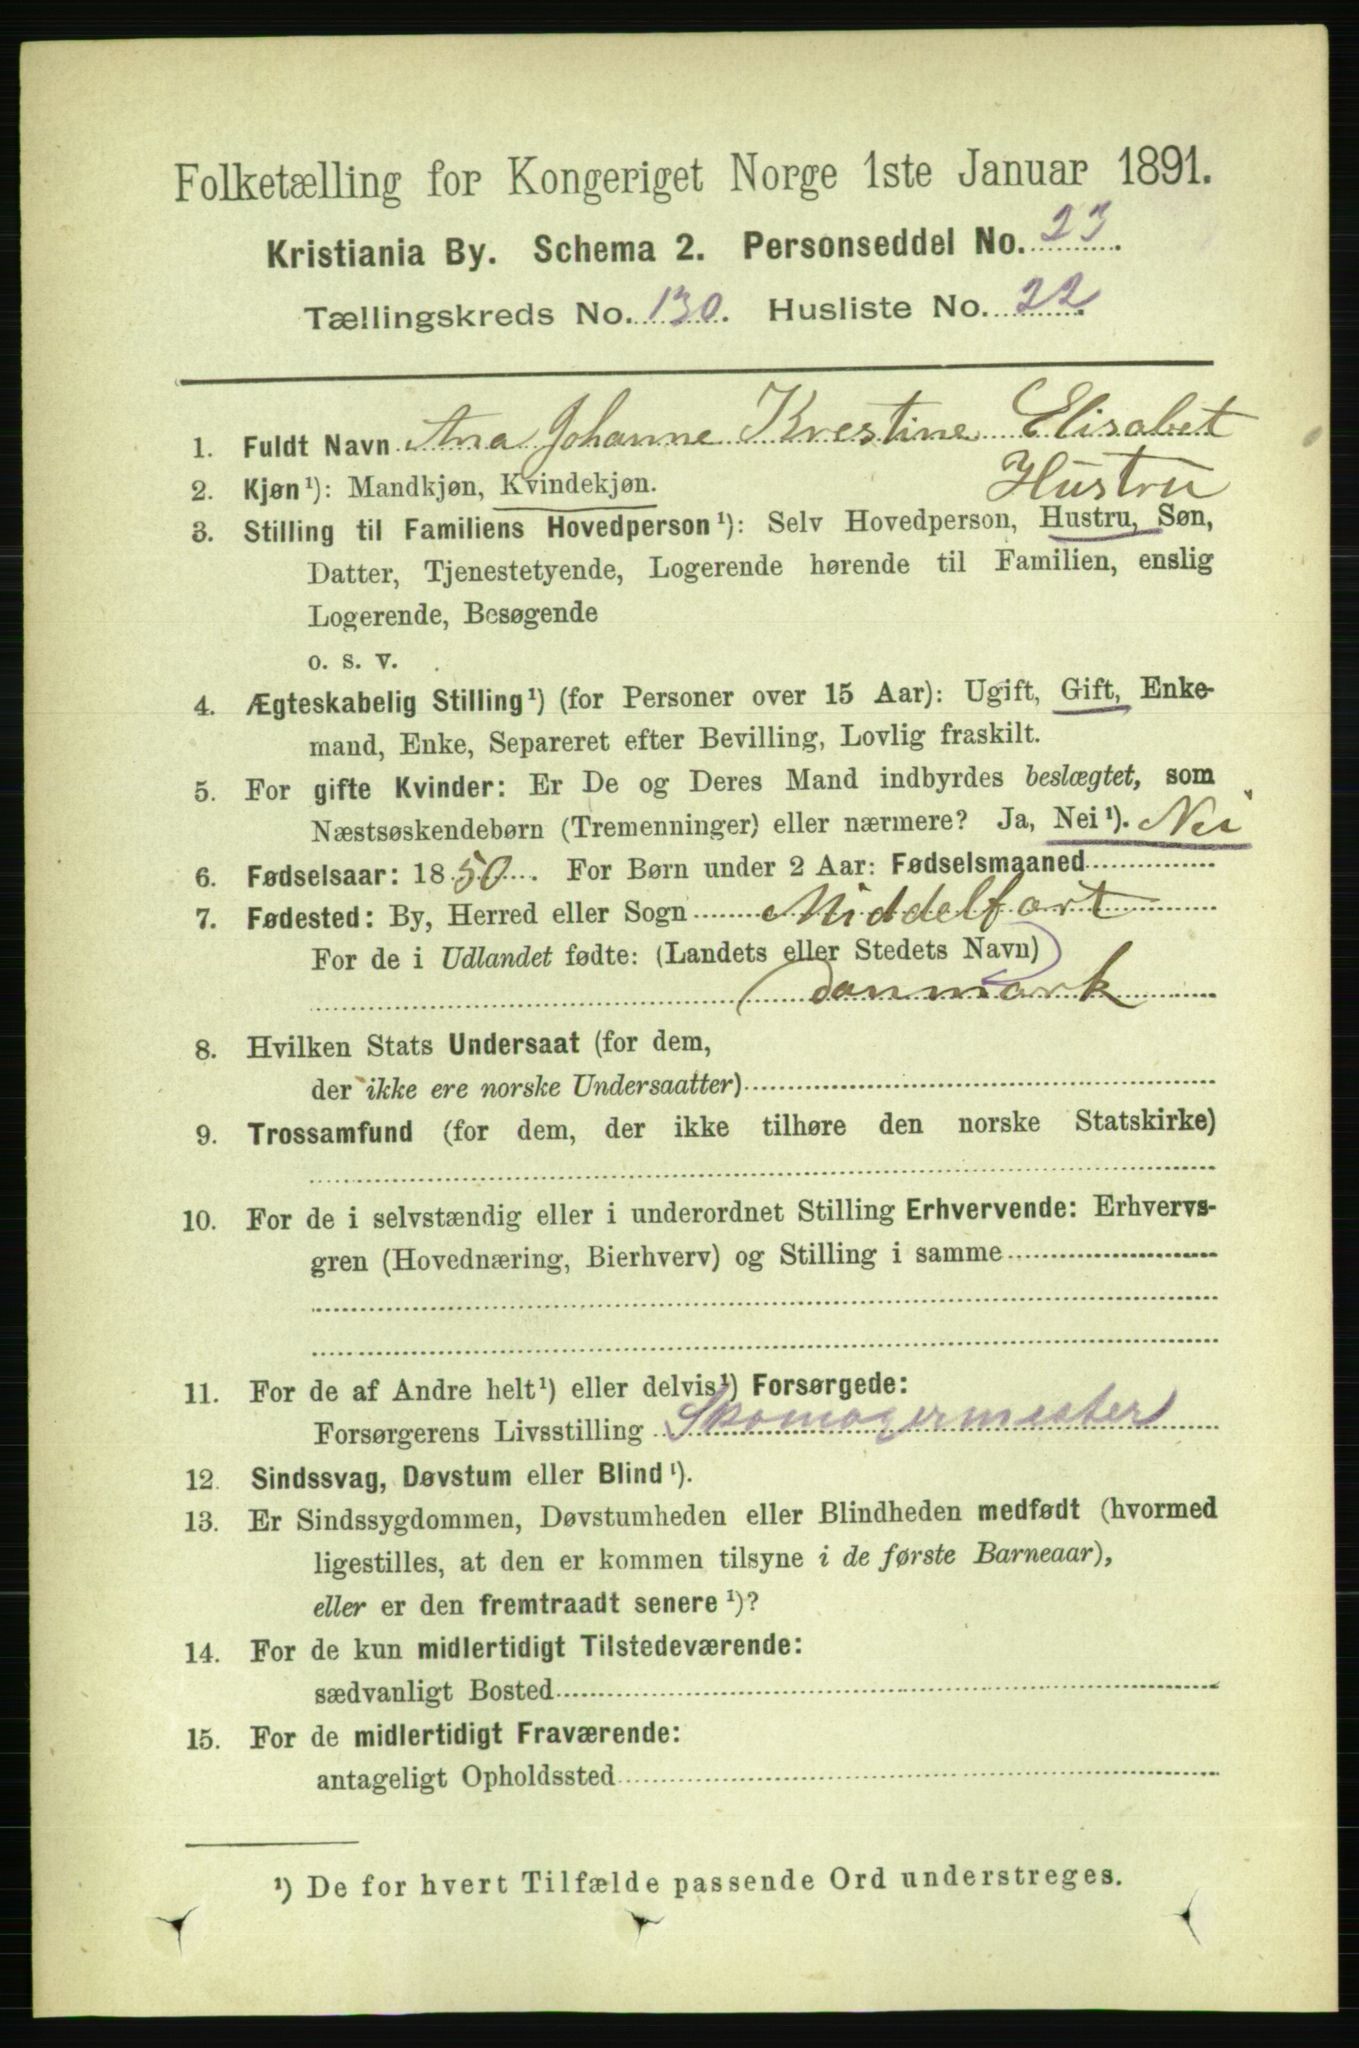 Folketælling for Kongeriget Norge 1ste Januar 1891.
Kristiania By. Schema 2. Personseddel No. 23.
Tællingskreds No. 130. Husliste No. 22.
1. Fuldt Navn Ana Johanne Krestine Elisabet
Hustru
2. Kjøn¹): Mandkjøn, Kvindekjøn.
3. Stilling til Familiens Hovedperson¹): Selv Hovedperson, Hustru, Søn,
Datter, Tjenestetyende, Logerende hørende til Familien, enslig
Logerende, Besøgende
o. s. v.
4. Ægteskabelig Stilling¹) (for Personer over 15 Aar): Ugift, Gift, Enke-
mand, Enke, Separeret efter Bevilling, Lovlig fraskilt.
5. For gifte Kvinder: Er De og Deres Mand indbyrdes beslægtet, som
Næstsøskendebørn (Tremenninger) eller nærmere? Ja, Nei¹). Nei
6. Fødselsaar: 1850. For Børn under 2 Aar: Fødselsmaaned
7. Fødested: By, Herred eller Sogn Middelfart
For de i Udlandet fødte: (Landets eller Stedets Navn)
Danmark
8. Hvilken Stats Undersaat (for dem,
der ikke ere norske Undersaatter)
9. Trossamfund (for dem, der ikke tilhøre den norske Statskirke)
10. For de i selvstændig eller i underordnet Stilling Erhvervende: Erhvervs-
gren (Hovednæring, Bierhverv) og Stilling i samme
11. For de af Andre helt¹) eller delvis¹) Forsørgede:
Forsørgerens Livsstilling Skomagermester
12. Sindssvag, Døvstum eller Blind¹).
13. Er Sindssygdommen, Døvstumheden eller Blindheden medfødt (hvormed
ligestilles, at den er kommen tilsyne i de første Barneaar),
eller er den fremtraadt senere¹)?
14. For de kun midlertidigt Tilstedeværende:
sædvanligt Bosted
15. For de midlertidigt Fraværende:
antageligt Opholdssted
¹) De for hvert Tilfælde passende Ord understreges.